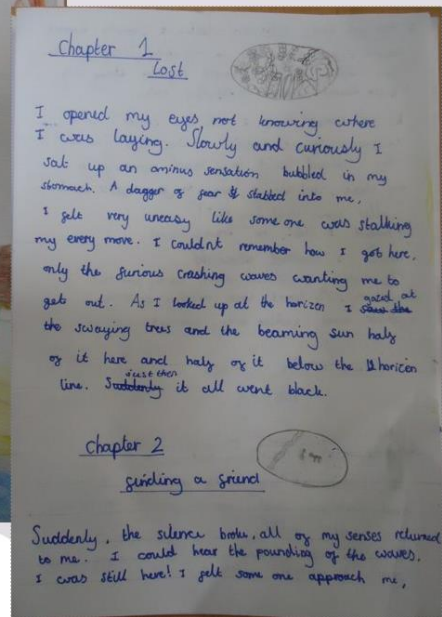 Chapter 1
Lost
I opened my eyes not knowing where
I was laying. Slowly and curiously I
sat up an aminus sensation bubbled in my
stomach. A dagger of fear stabbed into me,
I felt very uneasy like some one was stalking
my every move. I couldnt remember how I got here,
only the furious crashing waves wanting me to
get out. As I looked up at the horizen I gazed at
the swaying trees and the beaming sun half
of it here and half of it below the horicen
line. just then it all went black.
Chapter 2
finding a friend
Suddenly, the silence broke, all of my senses returned
to me. I could hear the pounding of the waves.
I was still here! I felt some one approach me,